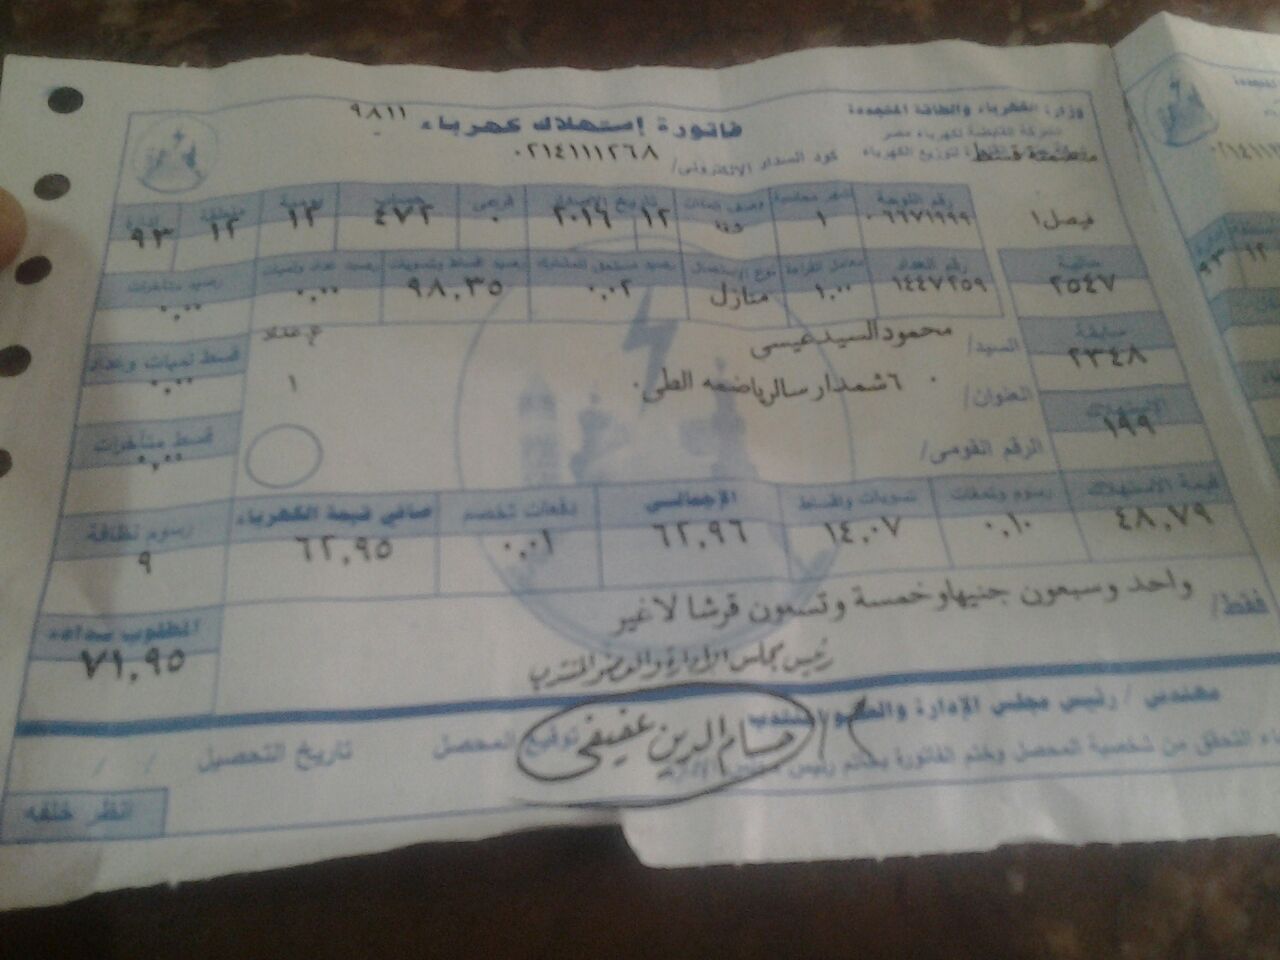 وزارة الكهرباء والطاقة المتجددة
الشركة القابضة لكهرباء مصر
لتوزيع الكهرباء
فاتورة إستهلاك كهرباء
٩٨١١
كود السداد الالكترونى/ ٠٢١٤١١١٢٦٨
فيصل١
رقم اللوحة تاريخ الاصدار قرص حساب يومية منطقة إدارة
٠٦٦٧١٩٩٩ ١ ١٢ ٢٠١٦ ٠ ٤٧٢ ١٢ ١٢ ٩٣
رقم العداد معامل القراءة نوع الإستعمال رصيد مستحق للمشترك رصيد أقساط وتسويات رصيد متأخرات
١٤٤٧٢٥٩ ١,٠٠ منازل ٠,٠٢ ٩٨,٣٥ ٠,٠٠ ٠,٠٠
حالية
٢٥٤٧
سابقة
٢٣٤٨
الاستهلاك
١٩٩
السيد/ محمود السيد عيسى
العنوان/ ٦
الرقم القومى/
ع عداد
١
٠,٠٠
قسط متأخرات
٠,٠٠
قيمة الاستهلاك رسوم ودمغات تسويات واقساط الإجمالى دفعات تخصم صافى قيمة الكهرباء رسوم نظافة
٤٨,٧٩ ٠,١٠ ١٤,٠٧ ٦٢,٩٦ ٠,٠١ ٦٢,٩٥ ٩
فقط/ واحد وسبعون جنيها وخمسة وتسعون قرشا لاغير
المطلوب سداده
٧١,٩٥
رئيس مجلس الإدارة والعضو المنتدب
مهندس / رئيس مجلس الإدارة والعضو المنتدب
حسام الدين عفيفى
التحقق من شخصية المحصل وختم الفاتورة بخاتم رئيس
توقيع المحصل
تاريخ التحصيل / /
انظر خلفه